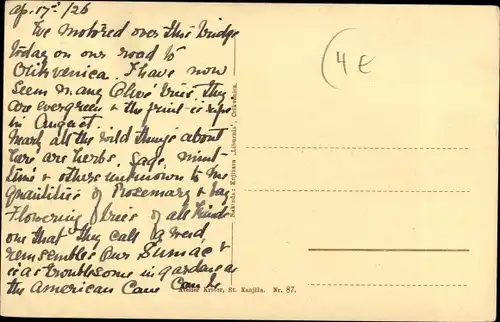 Ap. 17th/26
We motored over this bridge
today on our road to
Crikvenica. I have now
seen many Olive trees, they
are evergreen & the fruit is ripe
in August.
Nearly all the wild things about
here are herbs, Sage, mint
& others unknown to me
quantities of Rosemary & bay
Flowering trees of all kinds
one that they call a weed,
resembles our Sumac &
is as troublesome in gardens as
the American Cane can be
(4 E
Naklada: Knjižara „Liburnia“, Crikvenica.
Atelier Kreber, St. Kanjiža. Nr. 87.